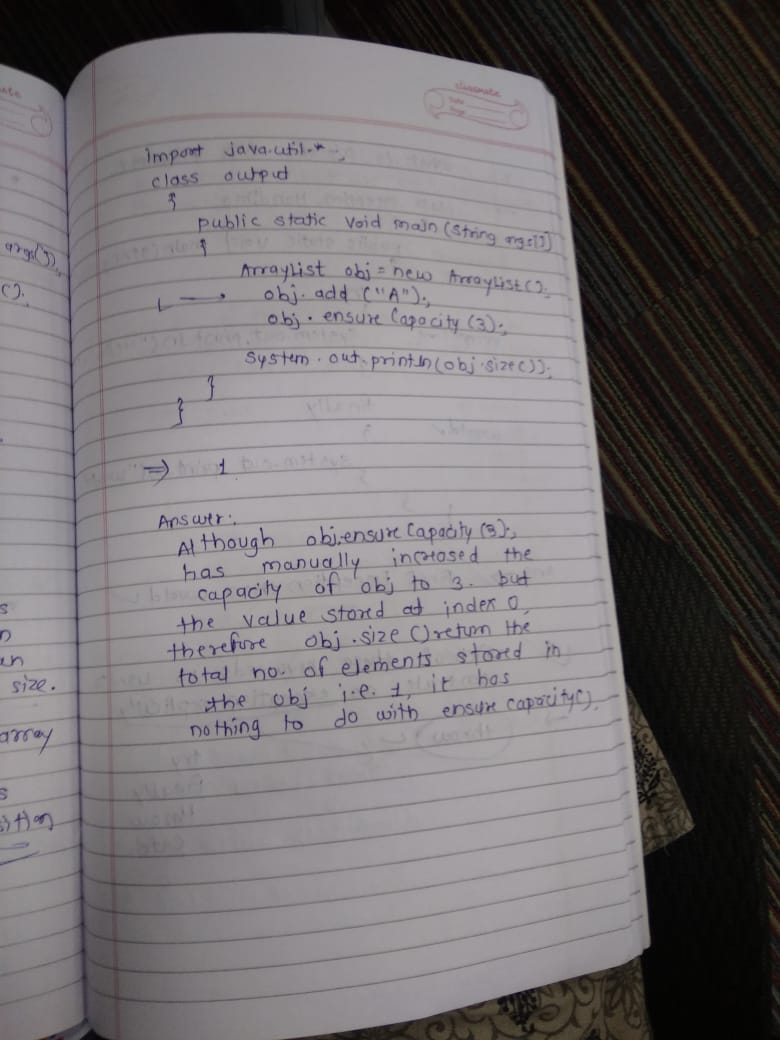 classmate
Date
Page
import java.util.*;
class output
{
public static void main (string args[])
{
ArrayList obj = new ArrayList();
obj. add ("A");
obj. ensure Capacity (3);
System. out. println (obj.size());
}
}
=> 1
Answer:
Although obj.ensure Capacity (3);
has manually increased the
capacity of obj to 3. but
the value stored at index 0,
therefore obj.size () return the
total no. of elements stored in
the obj i.e. 1, it has
nothing to do with ensure capacity().
args[]);
();
an
size.
array